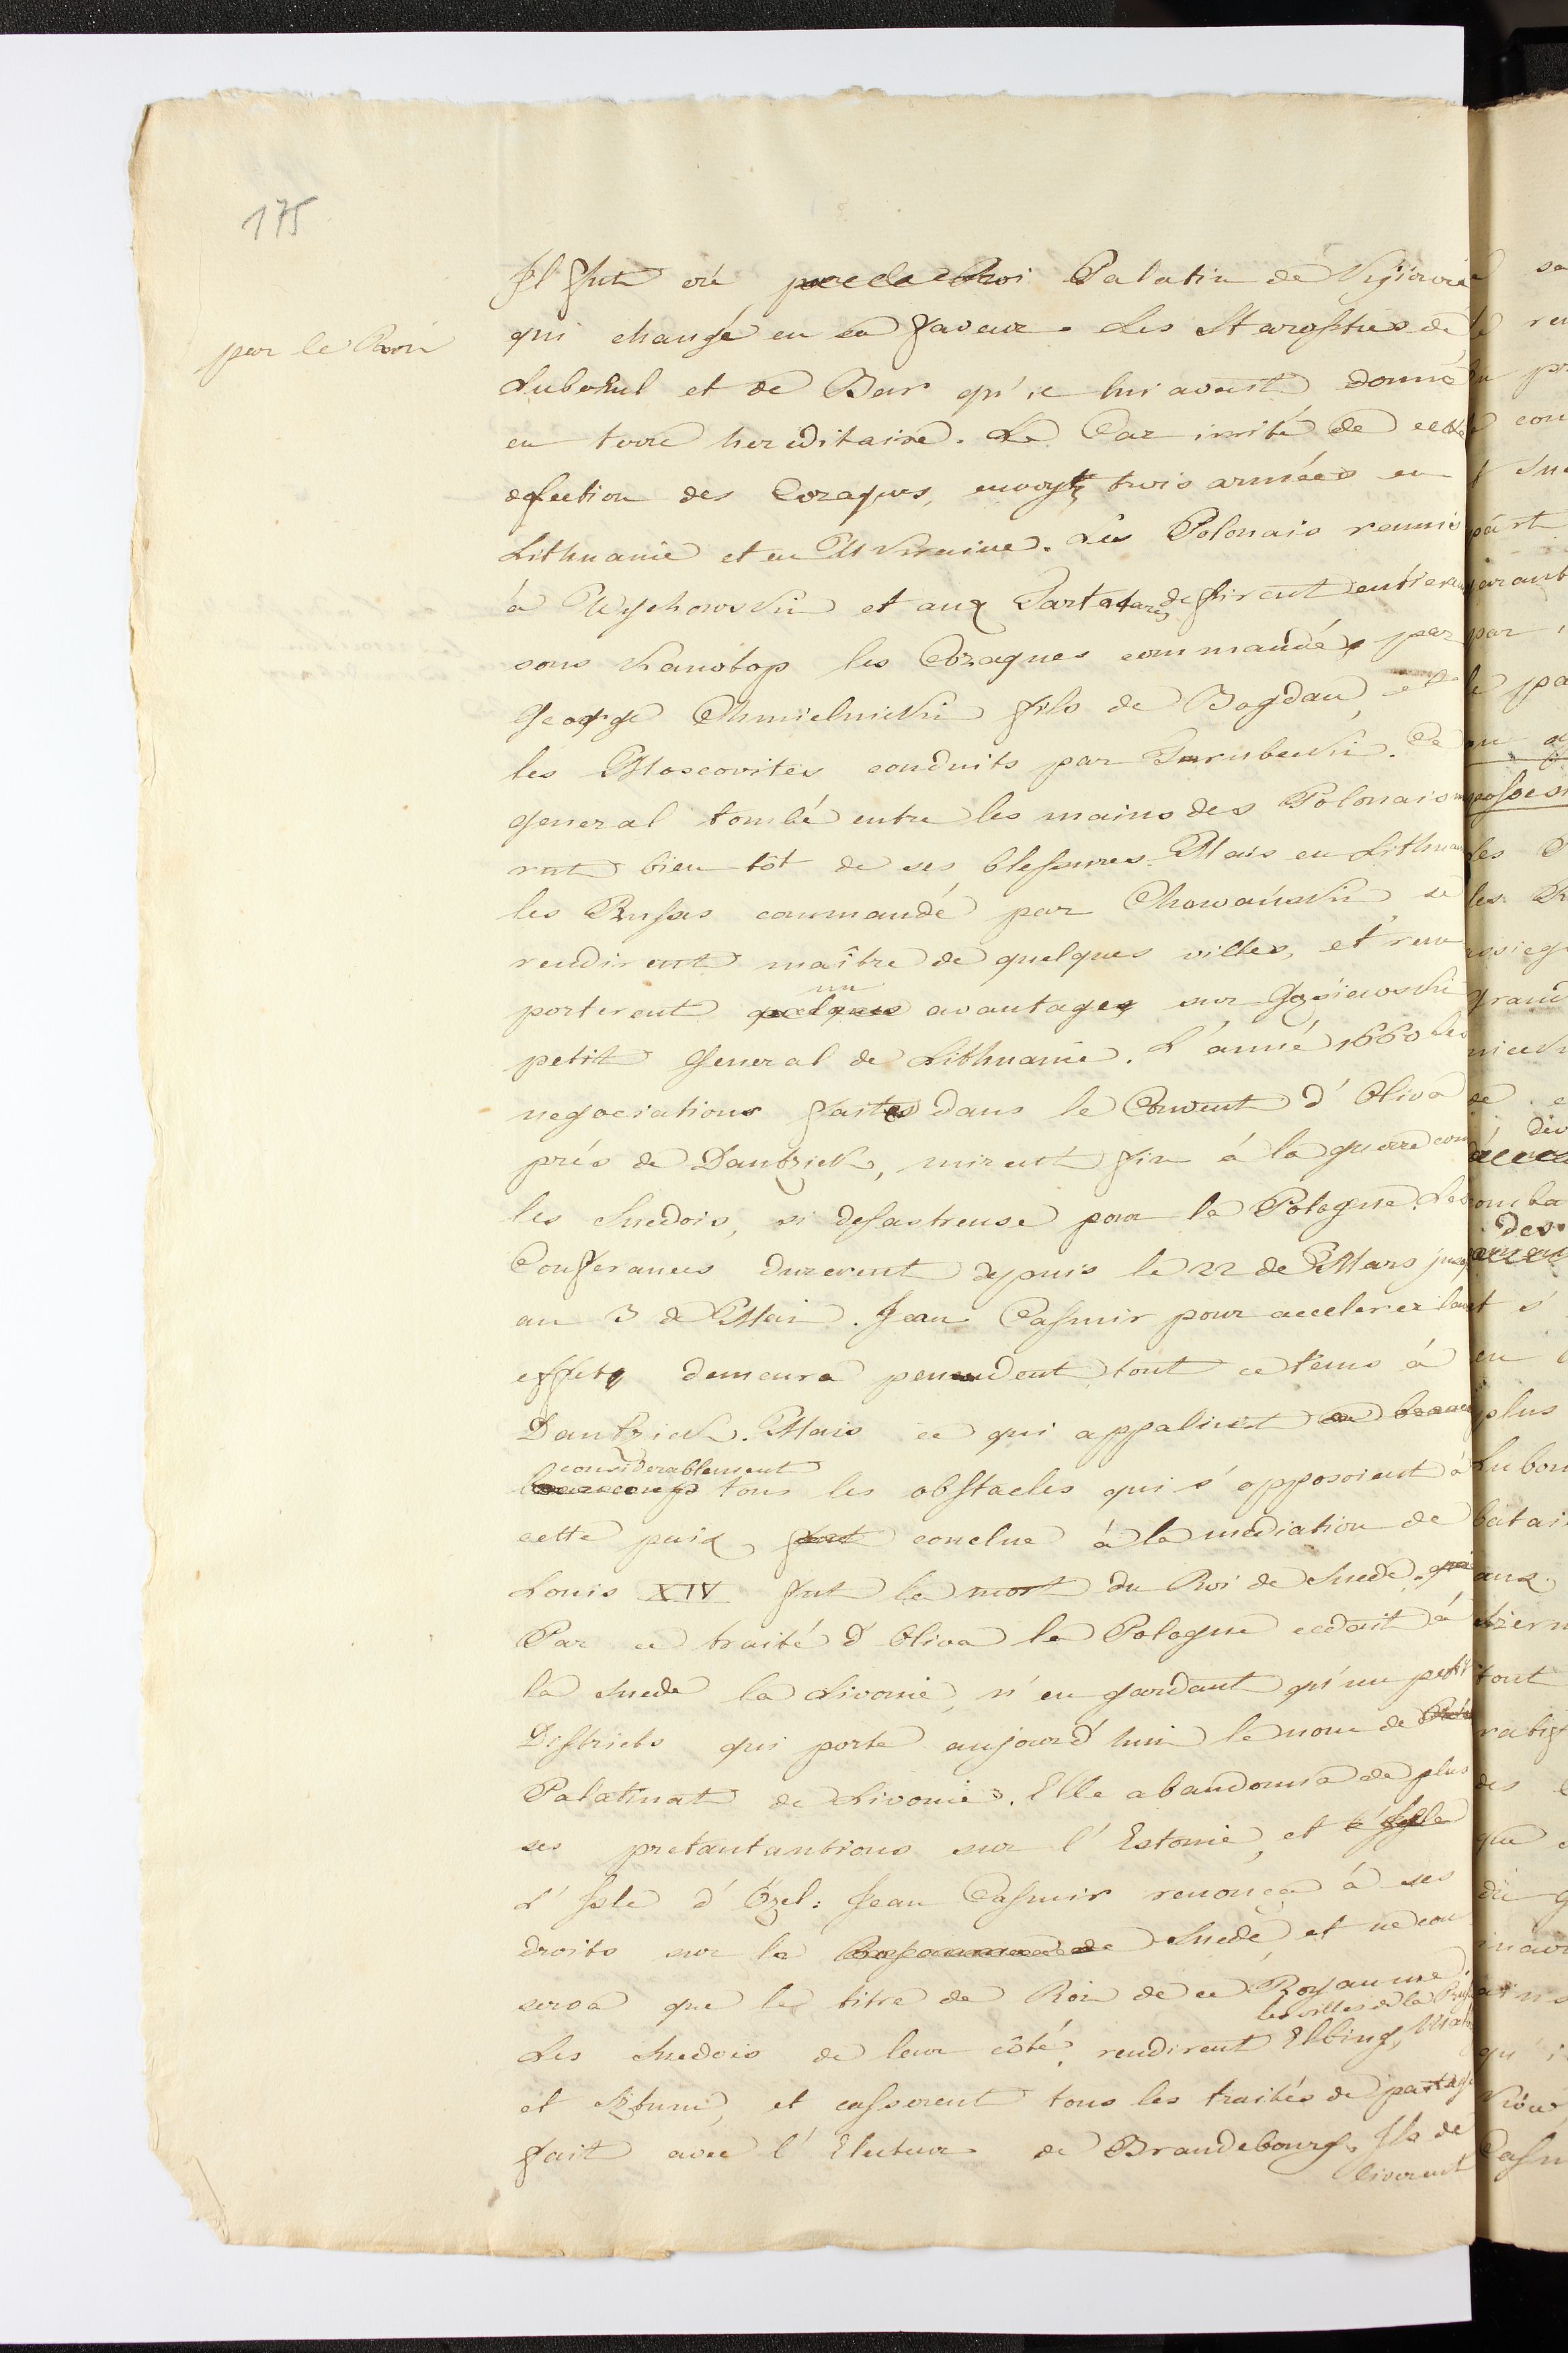 175
par le Roi
Il fut créé par le Roi Palatin de Kijiovie
qui changé en sa faveur. Les Starosties de
Lubohul et de Bar qu'il lui avait donné
en terre hereditaire. Le Czar irrité de cette
defection des Cozaques, envoya trois armées en
Lithuanie et en Ukraine. Les Polonais reunis
à Wyhowski et aux Tartares defirent entierem
sous Kanotop les Cozaques commandés par
George Chmielnicki fils de Bogdan, et
les Moscovites conduits par Trubecki. Ce
general tombé entre les mains des Polonais mou
rut bien tôt de ses blessures. Mais en Lithuan
les Russes commandé par Chowański se
rendirent maître de quelques villes, et rem
porterent quelques un avantages sur Gąsiewski
petit General de Lithuanie. L'année 1660 les
negociations faites dans le Couvent d'Oliva
près de Dantzick, mirent fin à la guerre con
les Suedois, si desastreuse pour la Pologne. Les
Conferances durerent depuis le 22 de Mars jusq
au 3 de Mai. Jean Casmir pour accelerer leur
effets demeura pendent tout ce tems à
Dantzick. Mais ce qui applanit
beaucoup considerablement tous les obstacles qui s'opposoient à
cette paix, fut conclue à la mediation de
Louis XIV fut la mort du Roi de Suede. qui
Par ce traité d'Oliva la Pologne cedait à
la Suede la Livonie, n'en gardant qu'un petit
Districts qui porte aujourd'hui le nom de
Palatinat de Livonie. Elle abandonna de plus
ses pretantantions sur l'Estonie, et l'Isle
L'Isle d'Özel: Jean Casmir renonça à ses
droits sur la Royaume de Suede, et ne con
serva que le titre de Roi de ce Royaume
Les Suedois de leur côté, rendirent les villes de la Elbing,
et Sztum, et casserent tous les traités de partage
fait avec l'Electeur de Brandebourg. Ils de
livrerent